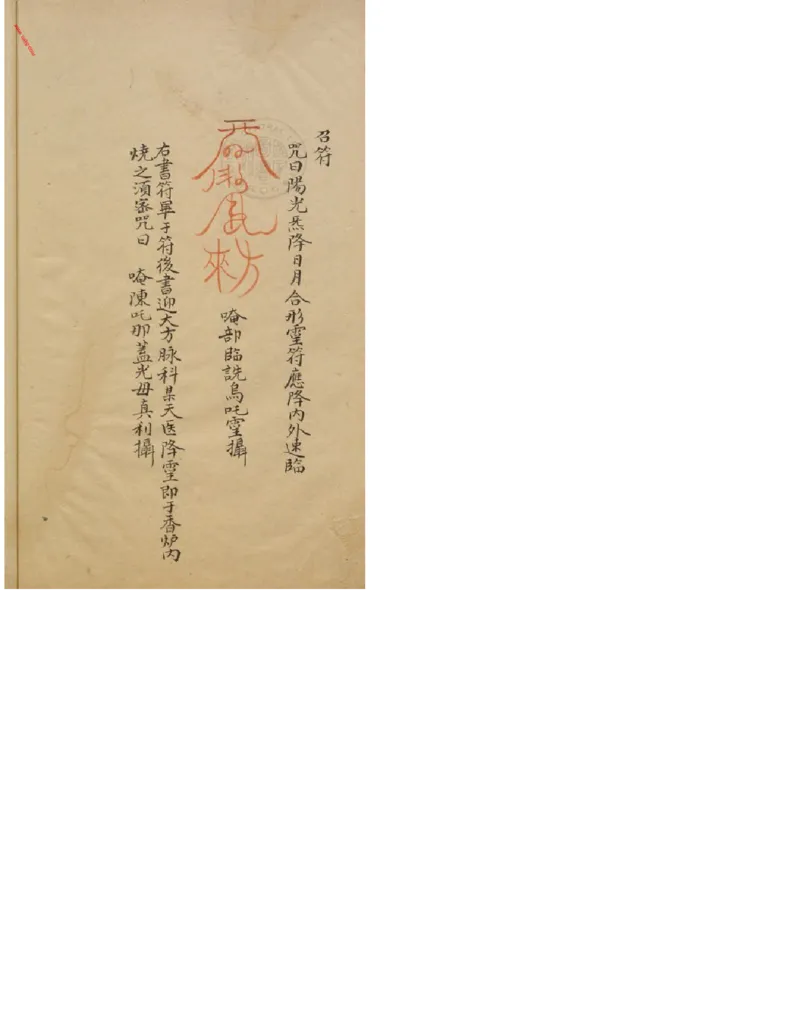 召符
咒曰陽光炁降日月合形靈符應降内外速臨
唵部臨詵烏吒靈攝
右書符畢于符後書迎大方脉科某天医降靈即于香炉内
燒之須密咒曰 唵陳吒那蓋光毋真利攝